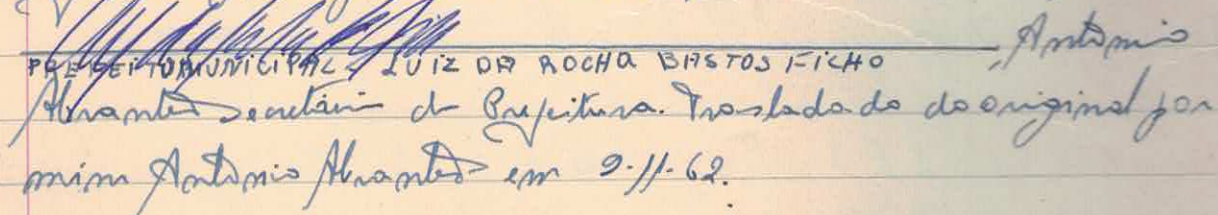 Antonio
PREFEITO MUNICIPAL - LUIZ DA ROCHA BASTOS FILHO
Abrantes Secretário da Prefeitura. Trasladado do original por
mim Antonio Abrantes em 9-11-62.